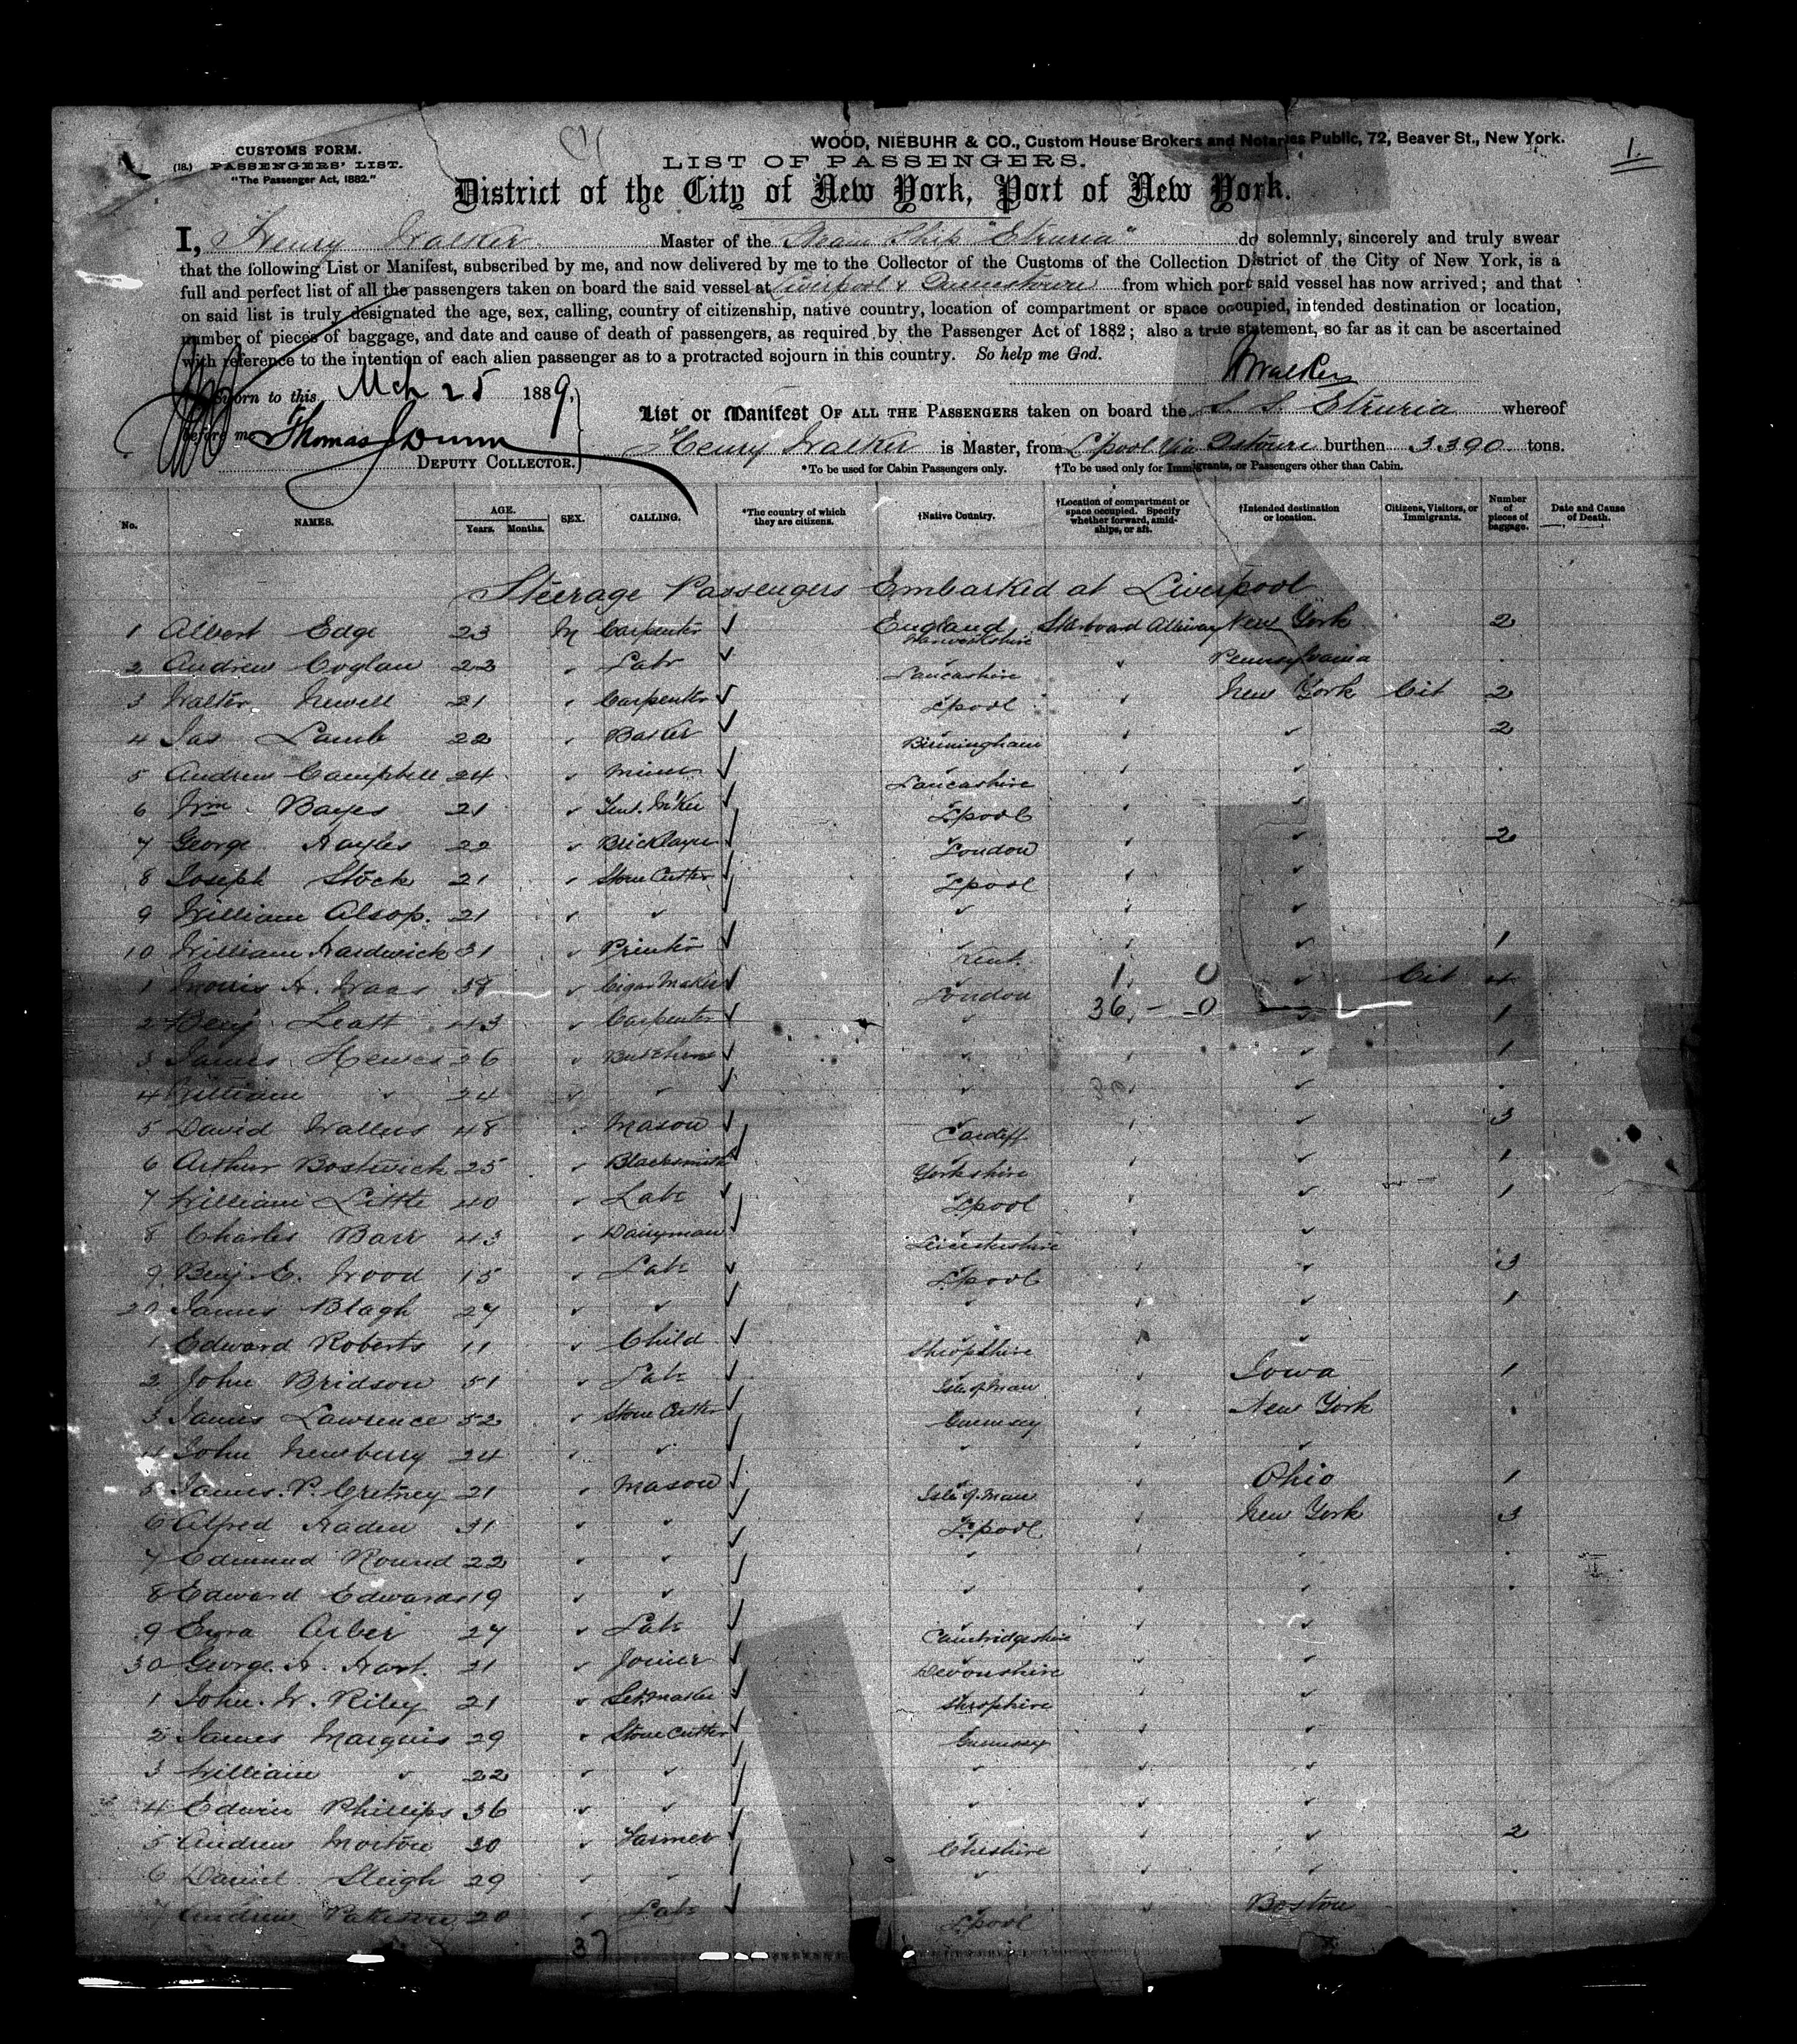 WOOD, NIEBUHR & CO., Custom House Brokers and Notaries Public, 72, Beaver St., New York.
1.
CUSTOMS FORM.
(18.) PASSENGERS' LIST.
"The Passenger Act, 1882."
LIST OF PASSENGERS.
District of the City of New York, Port of New York.
I, Henry Walker Master of the Steam Ship "Etruria" do solemnly, sincerely and truly swear
that the following List or Manifest, subscribed by me, and now delivered by me to the Collector of the Customs of the Collection District of the City of New York, is a
full and perfect list of all the passengers taken on board the said vessel at Liverpool & Queenstown from which port said vessel has now arrived; and that
on said list is truly designated the age, sex, calling, country of citizenship, native country, location of compartment or space occupied, intended destination or location,
number of pieces of baggage, and date and cause of death of passengers, as required by the Passenger Act of 1882; also a true statement, so far as it can be ascertained
with reference to the intention of each alien passenger as to a protracted sojourn in this country. So help me God.
HWalker
Sworn to this Mch 25 1889,
before me Thomas J Dunn
DEPUTY COLLECTOR.
List or Manifest OF ALL THE PASSENGERS taken on board the S. S. Etruria whereof
Henry Walker is Master, from L'pool Via Qstown burthen 3390 tons.
*To be used for Cabin Passengers only. †To be used only for Immigrants, or Passengers other than Cabin.
No. NAMES. AGE. Years. Months. SEX. CALLING. *The country of which they are citizens. †Native Country. †Location of compartment or space occupied. Specify whether forward, amidships, or aft. †Intended destination or location. Citizens, Visitors, or Immigrants. Number of pieces of baggage. Date and Cause of Death.
Steerage Passengers Embarked at Liverpool
1 Albert Edge 23 M Carpenter ✓ England Warwickshire Starboard Alleway New York 2
2 Andrew Coglan 22 ✓ Labr ✓ ✓ Lancashire ✓ Pennsylvania
3 Walter Newell 21 ✓ Carpenter ✓ ✓ Lpool ✓ New York Cit 2
4 Jas Lamb 22 ✓ Baker ✓ ✓ Birmingham ✓ ✓ 2
5 Andrew Campbell 24 ✓ Miner ✓ ✓ Lancashire ✓ ✓
6 Wm Bayes 21 ✓ M'Ker ✓ ✓ Lpool ✓ ✓
7 George Hayles 22 ✓ Bricklayer ✓ ✓ London ✓ ✓ 2
8 Joseph Stock 21 ✓ Stone Cutter ✓ ✓ Lpool ✓ ✓
9 William Alsop. 21 ✓ ✓ ✓ ✓ ✓ ✓
10 William Hardwick 31 ✓ Printer ✓ ✓ Kent. ✓ ✓ 1
1 Morris H. Haas 38 ✓ Cigar Maker ✓ ✓ London 1, 0 ✓ Cit 4
2 Benj Leatt 43 ✓ Carpenter ✓ ✓ 36, - 0 ✓ 1
3 James Hewes 26 ✓ ✓ ✓ ✓ ✓ 1
4 William ✓ 24 ✓ ✓ ✓ ✓ ✓
5 David Wallers 48 ✓ Mason ✓ ✓ Cardiff ✓ ✓ 3
6 Arthur Bostwick 25 ✓ Blacksmith ✓ ✓ Yorkshire ✓ ✓ 1
7 William Little 40 ✓ Labr ✓ ✓ Lpool ✓ ✓ 1
8 Charles Barr 43 ✓ Dairyman ✓ ✓ Leicestershire ✓ ✓
9 Benj E. Wood 15 ✓ Labr ✓ ✓ Lpool ✓ ✓ 3
20 James Blagh 27 ✓ ✓ ✓ ✓ ✓ ✓ 1
1 Edward Roberts 11 ✓ Child ✓ ✓ Shropshire ✓ ✓
2 John Bridson 51 ✓ Labr ✓ ✓ Isle of Man ✓ Iowa 1
3 James Lawrence 52 ✓ Stone Cutter ✓ ✓ Guernsey ✓ New York
4 John Newberry 24 ✓ ✓ ✓ ✓ ✓ ✓
5 James. P. Cretney 21 ✓ Mason ✓ ✓ Isle of Man ✓ Ohio 1
6 Alfred Haden 31 ✓ ✓ ✓ ✓ Lpool ✓ New York 3
7 Edmund Round 22 ✓ ✓ ✓ ✓ ✓
8 Edward Edwards 19 ✓ ✓ ✓ ✓ ✓ ✓
9 Ezra Arber 27 ✓ Labr ✓ ✓ Cambridgeshire ✓ ✓
30 George. H. Hart. 21 ✓ Joiner ✓ ✓ Devonshire ✓ ✓
1 John. W. Riley 21 ✓ ✓ ✓ Shropshire ✓ ✓
2 James Marquis 29 ✓ Stone Cutter ✓ ✓ Guernsey ✓ ✓
3 William ✓ 22 ✓ ✓ ✓ ✓ ✓ ✓
4 Edwin Phillips 36 ✓ ✓ ✓ ✓ ✓ ✓
5 Andrew Morton 30 ✓ Farmer ✓ ✓ Cheshire ✓ ✓ 2
6 Daniel Sleigh 29 ✓ ✓ ✓ ✓ ✓ ✓
7 Andrew Patterson 20 ✓ Labr ✓ ✓ Lpool ✓ Boston
37